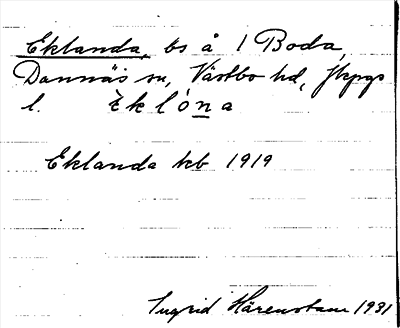 Eklanda, bs å 1 Boda,
Dannäs sn, Västbo hd, Jkpgs
l. ὲklónа
Eklanda kb 1919
Ingrid Härenstam 1931